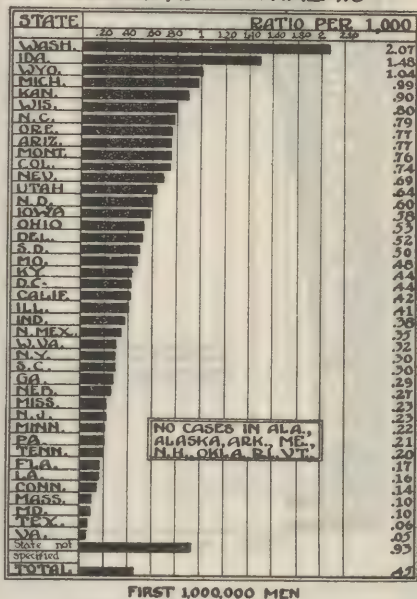 STATE RATIO PER 1,000
.20 .40 .60 .80 1 1.20 1.40 1.60 1.80 2 2.20
WASH. 2.07
IDA. 1.48
WYO. 1.04
MICH. .99
KAN. .90
WIS. .80
N.C. .79
ORE. .77
ARIZ. .77
MONT. .76
COL. .74
NEV. .69
UTAH .64
N.D. .60
IOWA .58
OHIO .53
DEL. .52
S.D. .50
MO. .48
KY. .44
D.C. .44
CALIF. .42
ILL. .41
IND. .38
N.MEX. .35
W.VA. .32
N.Y. .30
S.C. .30
GA. .29
NEB. .27
MISS. .23
N.J. .23
MINN. .22
PA. .21
TENN. .20
FLA. .17
LA. .16
CONN. .14
MASS. .10
MD. .10
TEX. .06
VA. .05
State not .93
specified
TOTAL. .45
NO CASES IN ALA.,
ALASKA, ARK., ME.,
N.H., OKLA. R.I., VT.
FIRST 1,000,000 MEN